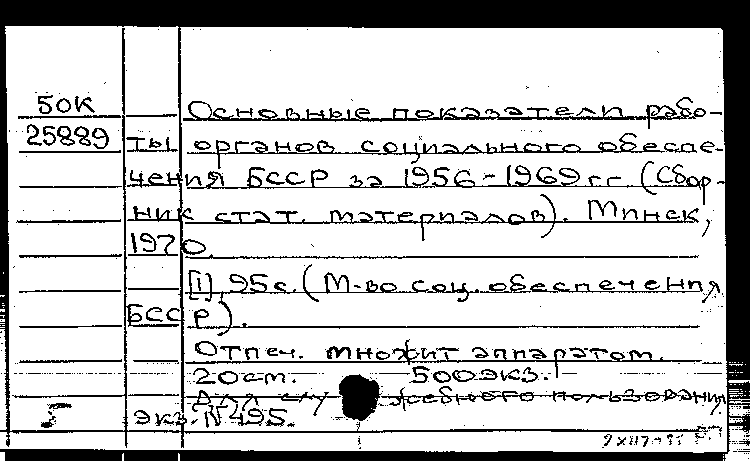 50К
25889
Основные показатели рабо-
ты органов социального обеспе-
чения БССР за 1956-1969 гг (Сбор-
ник стат. материалов). Минск,
1970.
[1], 95 с. (М-во соц. обеспечения
БССР).
Отпеч. множит аппаратом.
20 см. 500 экз.
Для служебного пользования
экз. N 495.